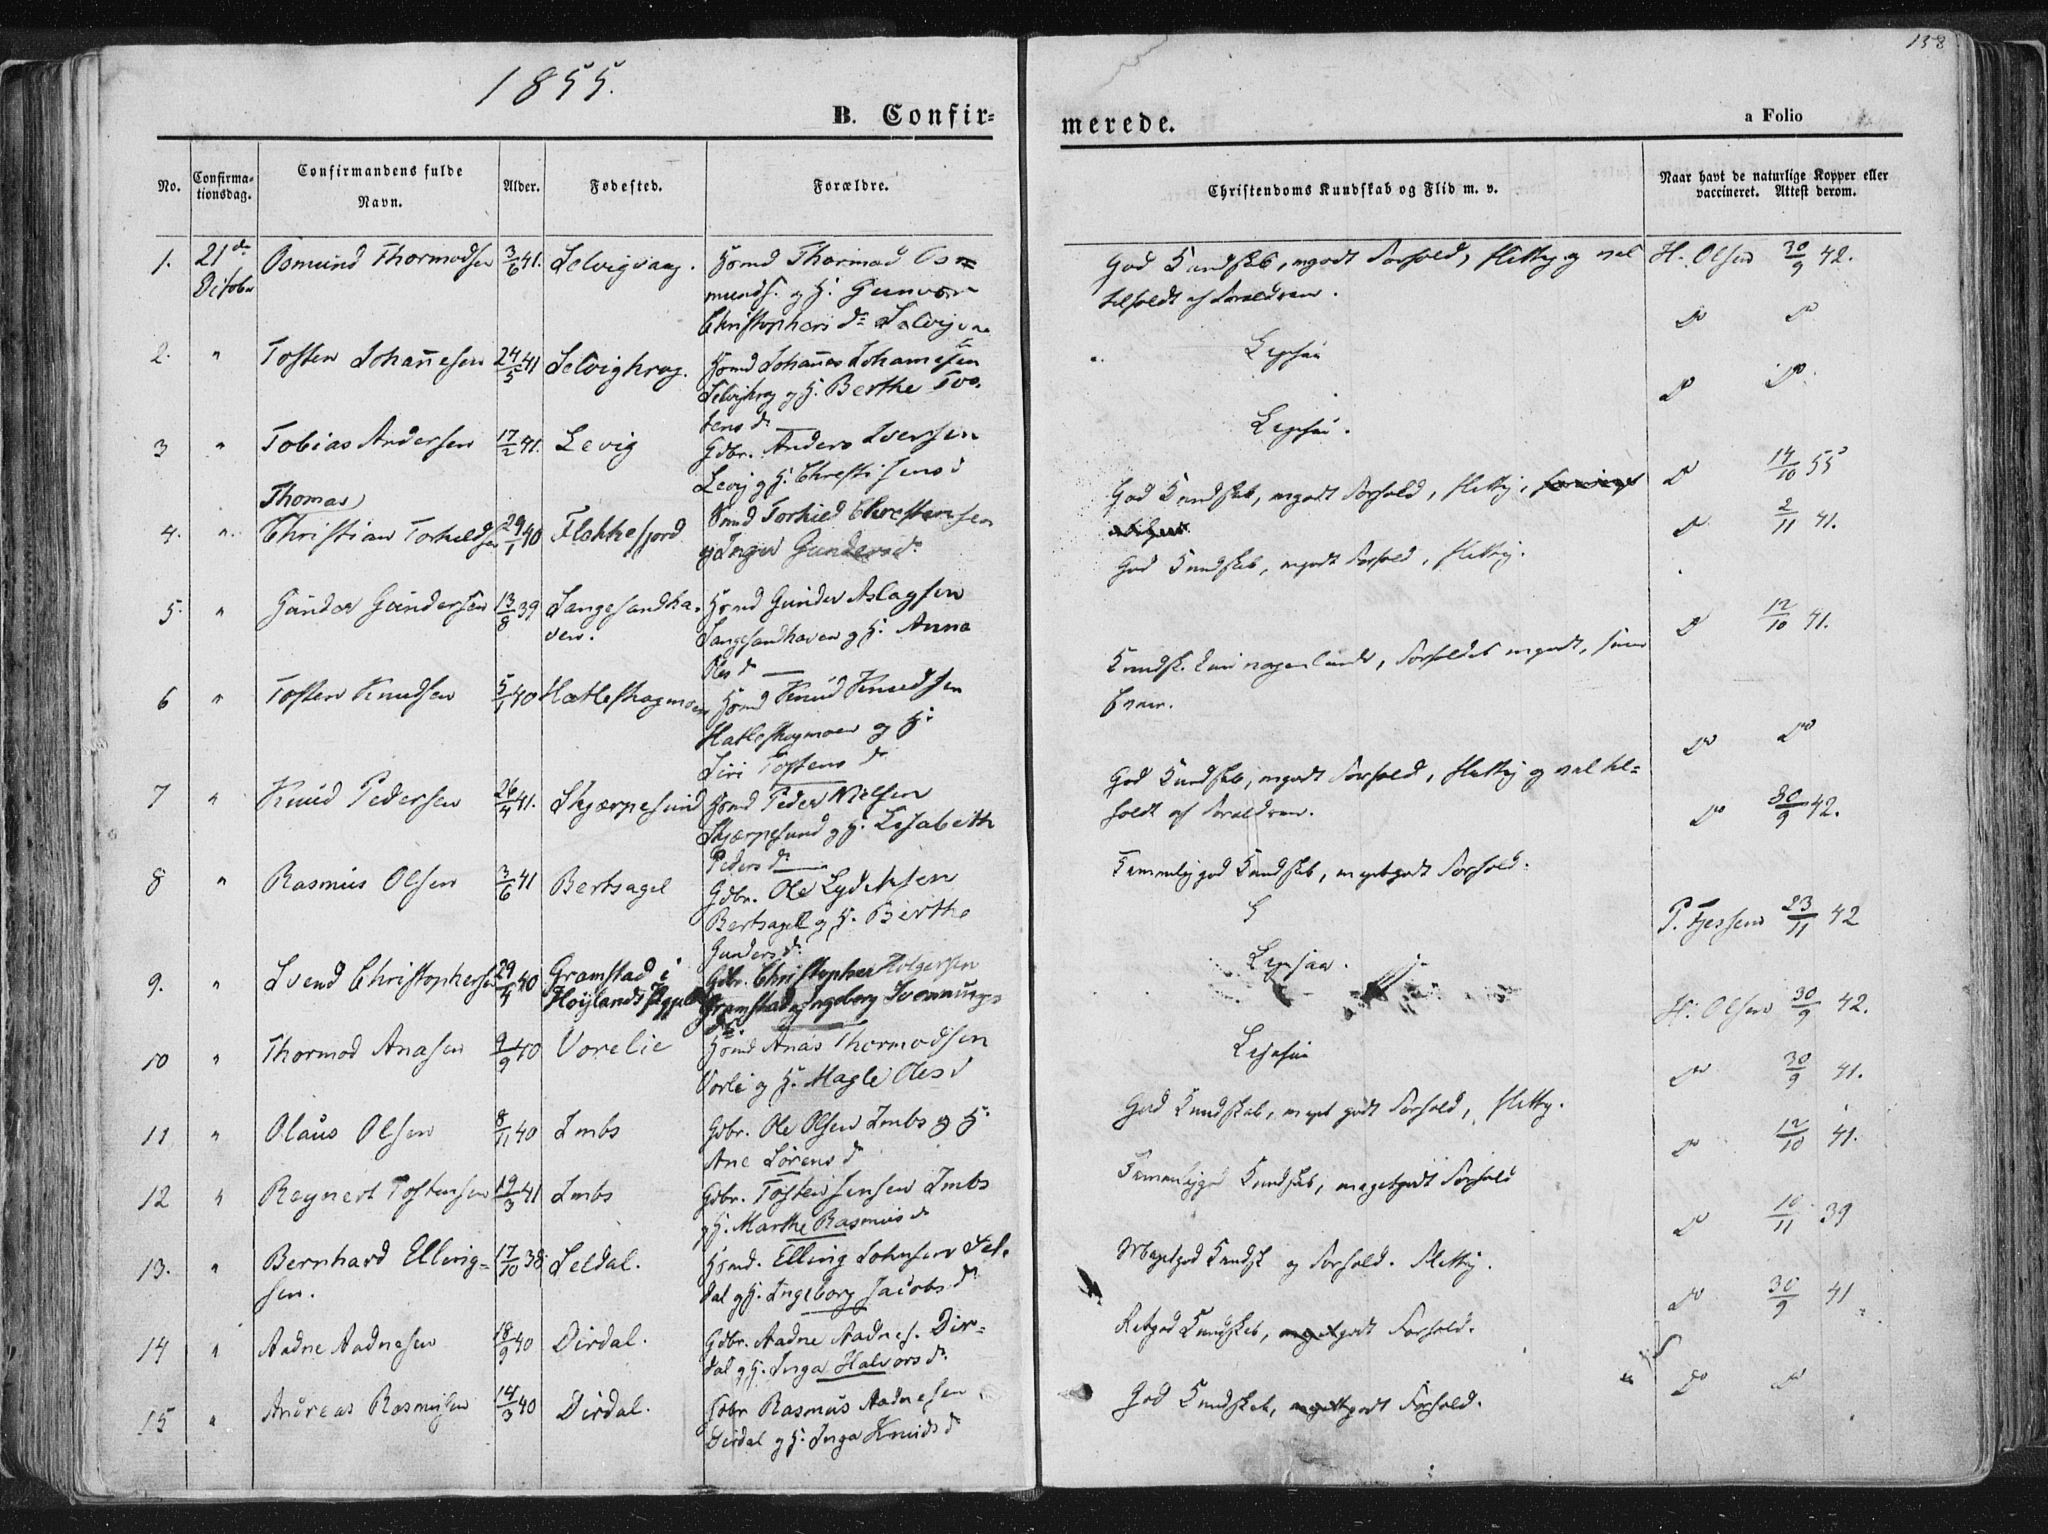 1855.
138
B. Confir-
merede.
a Folio
No.
Confirma-
tionsdag.
Confirmandens fulde
Navn.
Alder.
Fødested.
Forældre.
Christendoms Kundskab og Flid m. v.
Naar havt de naturlige Kopper eller
vaccineret. Attest derom.
1. 21de Osmund Thormodsen 3/6 41. Selvigvaag. Hsmd Thormod Os=
October munds. og H. Gunvor
Christophers Dr
God Kundskab, megodt Forhold, flittig og vel H. Olsen 30/9 42.
tilholdt af Forældrene.
2. " Tosten Johañesen 24/5 41 Selvighrag. Hsmd Johañes Johannesen
og H. Berthe Tos-
tens d
Ligesaa Do Do
3 " Tobias Andersen 17/2 41. Levig Gdbr. Anders Iversen
Levig og H. Christi Jens d
Ligesaa. Do Do
Thomas
4. " Christian Torkildsen 29/1 40 Flekkefjord Torkild Christensen
og Inger Gunders d.
God Kundskab, megodt Forhold, flittig, Do 14/10 55
5. " Gunder Gundersen 13/8 39 Langesandha- Hsmd Gunder Aslagsen
ven. Langesandhaven og H. Anna
Oles d
God Kundskab, megodt Forhold, flittig. Do 2/11 41.
6 " Tosten Knudsen 5/1 40 Hatleskogmoen Hsmd Knud Knudsen
Hatleskogmoen og H.
Siri Tostens d
Kundsk. kun nogenlunde, Forholdet megodt, Do 12/10 41.
7 " Knud Pedersen 26/4 41. Skjærpesund Hsmd Peder Nielsen
Skjærpesund og H. Lisabeth
Peders d
God Kundskab, megodt Forhold, flittig og vel til= Do Do
holdt af Forældrene.
8 " Rasmus Olsen 3/6 41 Bertsagel Gdbr. Ole
Bertsagel og H. Berthe
Gunders d.
Temmelig god Kundskab, meget godt Forhold. Do 30/9 42.
9. " Svend Christophersen 29/4 40 Gramstad i Gdbr. Christopher Holgersen
Høylands Gramstad og Ingeborg Svennungs
d.
Ligesaa. P. 23/11 42
10 " Thormod Anasen 9/9 40 Vorelie Hsmd Anas Thormodsen
og H. Magle Oles d
Ligesaa H. Olsen 30/9 42.
11 " Olaus Olsen 8/11 40 Imbs Gdbr. Ole Olsen Imbs og H.
Ane Sørens d
God Kundskab, meget godt Forhold, flittig. Do 30/9 41.
12 " Reynert Tostensen 19/3 41 Imbs Gdbr. Tosten Jensen Imbs
og H. Marthe Rasmus d
Temmelig god Kundskab, meget godt Forhold Do 12/10 41.
13. " Bernhard Elling= 17/10 38 Seldal. Hsmd. Elling Johnsen Sel-
sen. dal og H. Ingeborg Jacobs d
Meget god Kundsk og Forhold. Flittig. Do 10/11 39
14 " Aadne Aadnesen 18/9 40 Dirdal. Gdbr. Aadne Aadnes. Dir=
dal og H. Inga Halvors d.
Ret god Kundskab, godt Forhold. Do 30/9 41
15 " Andreas Rasmusen 14/3 40 Dirdal. Gdbr Rasmus Aadnesen
Dirdal og H. Inga Knuds d
God Kundskab, godt Forhold. Do Do